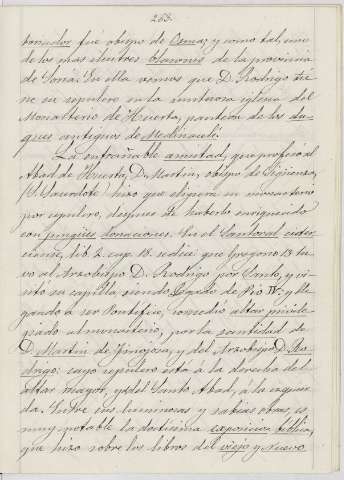 268.
toriador fué obispo de Osma; y como tal, uno
de los mas ilustres blasones de la provincia
de Soria. En ella vemos que D. Rodrigo tie-
ne su sepulcro en la suntuosa iglesia del
Monasterio de Huerta, panteon de los du-
ques antiguos de Medinaceli.
La entrañable amistad, que profesó al
Abad de Huerta, D. Martin, obispo de Sigüenza,
hizo que eligiera su monasterio
por sepulcro, despues de haberlo enriquecido
con pingües donaciones. En el Santoral cister-
ciense, lib. 2. cap. 18. se dice que Gregorio 13 tu-
vo al Arzobispo D. Rodrigo por Santo, y vi-
sitó su capilla, siendo Legado de Pio IV; y lle-
gando á ser Pontífice, concedió altar privile-
giado al monasterio, por la santidad de
D. Martin de Finojosa, y del Arzobispo D. Ro-
drigo: cuyo sepulcro está á la derecha del
altar mayor, y el del Santo Abad, á la izquier-
da. Entre sus luminosas y sabias obras, es
muy notable la doctisima exposicion biblica,
que hizo sobre los libros del viejo y Nuevo